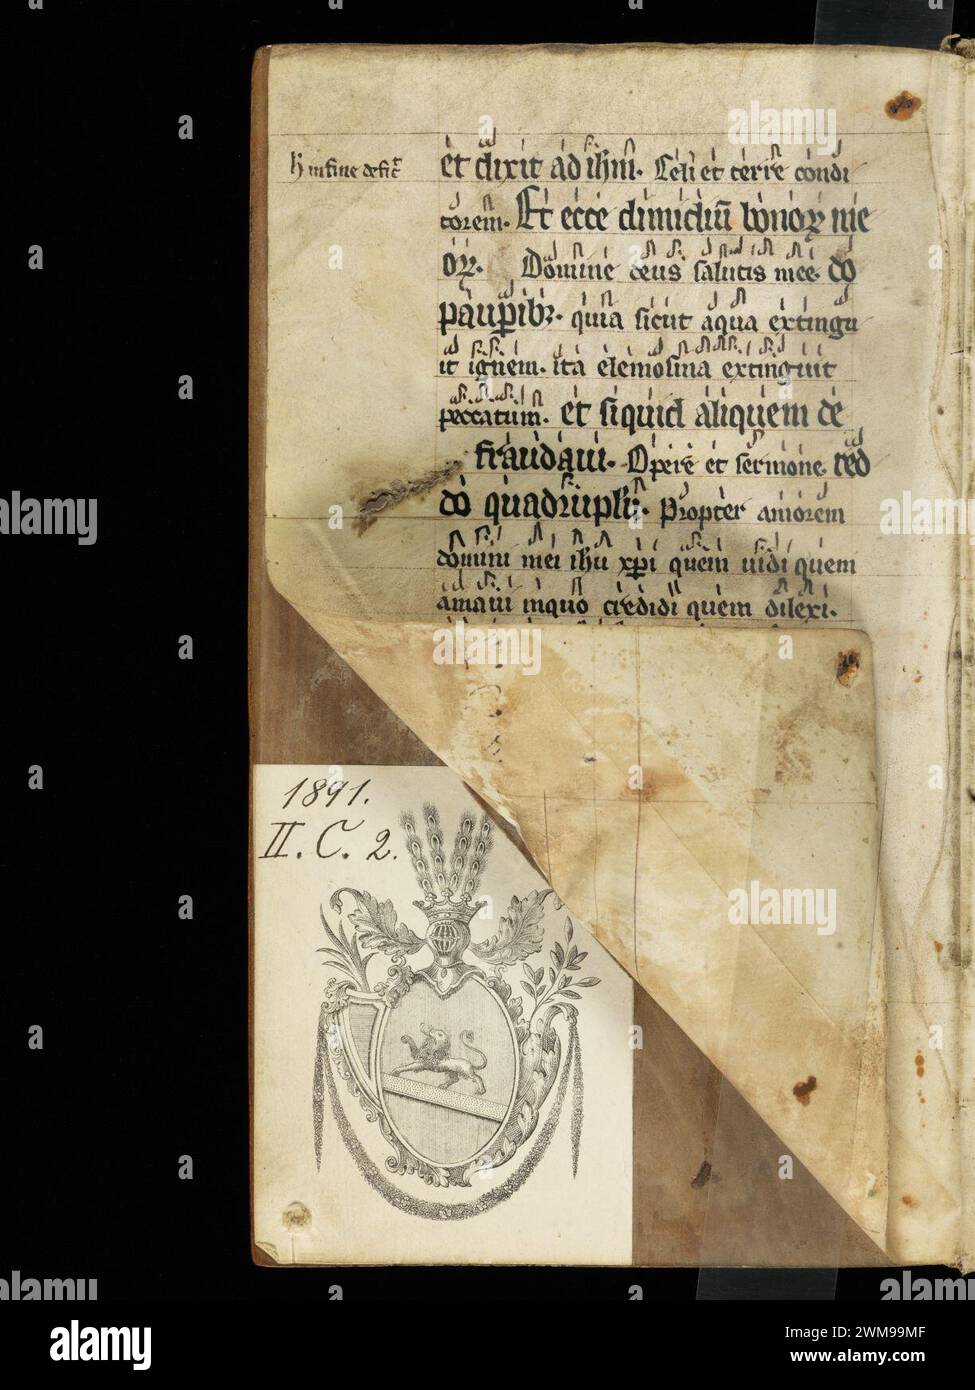 et dixit ad ihm. Celi et terre condi
torem. Et ecce dimidiu bonoꝝ me
oꝝ. Domine deus salutis mee. do
pauꝑibꝫ. quia sicut aqua extingu
it ignem. ita elemosina extinguit
peccatum. et si quid aliquem de
fraudaui. Opere et sermone. red
do quadruplu. Propter amorem
domini mei ihu xpi quem uidi quem
amaui inquo credidi quem dilexi.
1891.
II. C. 2.
alamy
Image ID: 2WM99MF
www.alamy.com